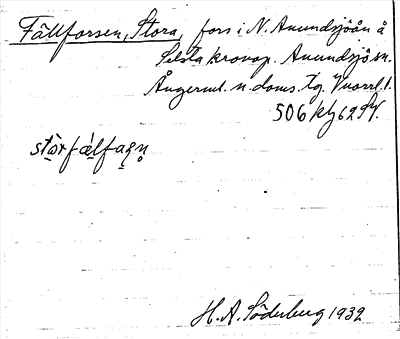 Fällforsen, Stora, fors i N. Anundsjöån å
Selsta kronop. Anundsjö sn.
Ångerml. n. doms. tg. Vnorrl. l.
506 klj 62 SV.
stò̱rfæ̀lfaṣṇ
H. A. Söderberg 1932